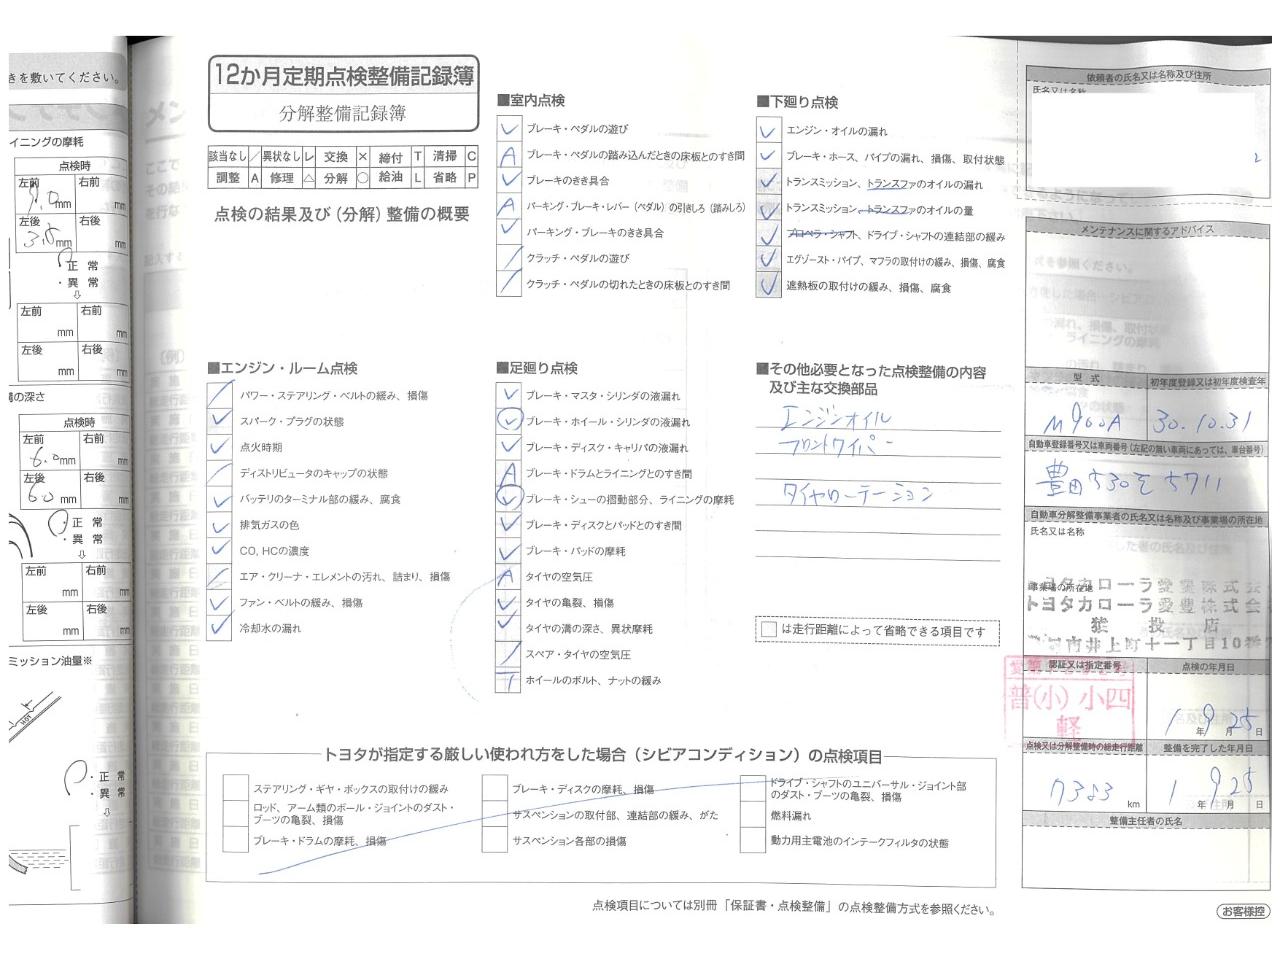 きを敷いてください。
イニングの摩耗
点検時
左前 右前
9.0mm mm
左後 右後
3.5mm mm
・正 常
・異 常
⇩
左前 右前
mm mm
左後 右後
mm mm
点検時
左前 右前
6.0mm mm
左後 右後
6.0mm mm
・正 常
・異 常
⇩
左前 右前
mm mm
左後 右後
mm mm
ミッション油量※
・正 常
・異 常
⇩
12か月定期点検整備記録簿
分解整備記録簿
該当なし / 異状なし レ 交換 × 締付 T 清掃 C
調整 A 修理 △ 分解 ○ 給油 L 省略 P
点検の結果及び(分解)整備の概要
■エンジン・ルーム点検
パワー・ステアリング・ベルトの緩み、損傷
スパーク・プラグの状態
点火時期
ディストリビュータのキャップの状態
バッテリのターミナル部の緩み、腐食
排気ガスの色
CO、HCの濃度
エア・クリーナ・エレメントの汚れ、詰まり、損傷
ファン・ベルトの緩み、損傷
冷却水の漏れ
■室内点検
ブレーキ・ペダルの遊び
A ブレーキ・ペダルの踏み込んだときの床板とのすき間
ブレーキのきき具合
A パーキング・ブレーキ・レバー(ペダル)の引きしろ(踏みしろ)
パーキング・ブレーキのきき具合
クラッチ・ペダルの遊び
クラッチ・ペダルの切れたときの床板とのすき間
■足廻り点検
ブレーキ・マスタ・シリンダの液漏れ
ブレーキ・ホイール・シリンダの液漏れ
ブレーキ・ディスク・キャリパの液漏れ
A ブレーキ・ドラムとライニングとのすき間
ブレーキ・シューの摺動部分、ライニングの摩耗
ブレーキ・ディスクとパッドとのすき間
ブレーキ・パッドの摩耗
A タイヤの空気圧
タイヤの亀裂、損傷
タイヤの溝の深さ、異状摩耗
スペア・タイヤの空気圧
T ホイールのボルト、ナットの緩み
■下廻り点検
エンジン・オイルの漏れ
ブレーキ・ホース、パイプの漏れ、損傷、取付状態
トランスミッション、トランスファのオイルの漏れ
トランスミッション、トランスファのオイルの量
プロペラ・シャフト、ドライブ・シャフトの連結部の緩み
エグゾースト・パイプ、マフラの取付けの緩み、損傷、腐食
遮熱板の取付けの緩み、損傷、腐食
■その他必要となった点検整備の内容
及び主な交換部品
エンジンオイル
フロントワイパー
タイヤローテーション
□は走行距離によって省略できる項目です
トヨタが指定する厳しい使われ方をした場合(シビアコンディション)の点検項目
ステアリング・ギヤ・ボックスの取付けの緩み
ロッド、アーム類のボール・ジョイントのダスト・
ブーツの亀裂、損傷
ブレーキ・ドラムの摩耗、損傷
ブレーキ・ディスクの摩耗、損傷
サスペンションの取付部、連結部の緩み、がた
サスペンション各部の損傷
ドライブ・シャフトのユニバーサル・ジョイント部
のダスト・ブーツの亀裂、損傷
燃料漏れ
動力用主電池のインテークフィルタの状態
点検項目については別冊「保証書・点検整備」の点検整備方式を参照ください。
依頼者の氏名又は名称及び住所
氏名又は名称
メンテナンスに関するアドバイス
型 式 初年度登録又は初年度検査年
M900A 30.10.31
自動車登録番号又は車両番号(左記の無い車両にあっては、車台番号)
豊田530 そ 5711
自動車分解整備事業者の氏名又は名称及び事業場の所在地
氏名又は名称
事業場の所在地
トヨタカローラ愛豊株式会
トヨタカローラ愛豊株式会
猿 投 店
市井上町十一丁目10番
認証又は指定番号 点検の年月日
普(小)小四
軽
1年 9月 25日
点検又は分解整備時の総走行距離 整備を完了した年月日
7383 km 1年 9月 25日
整備主任者の氏名
お客様控